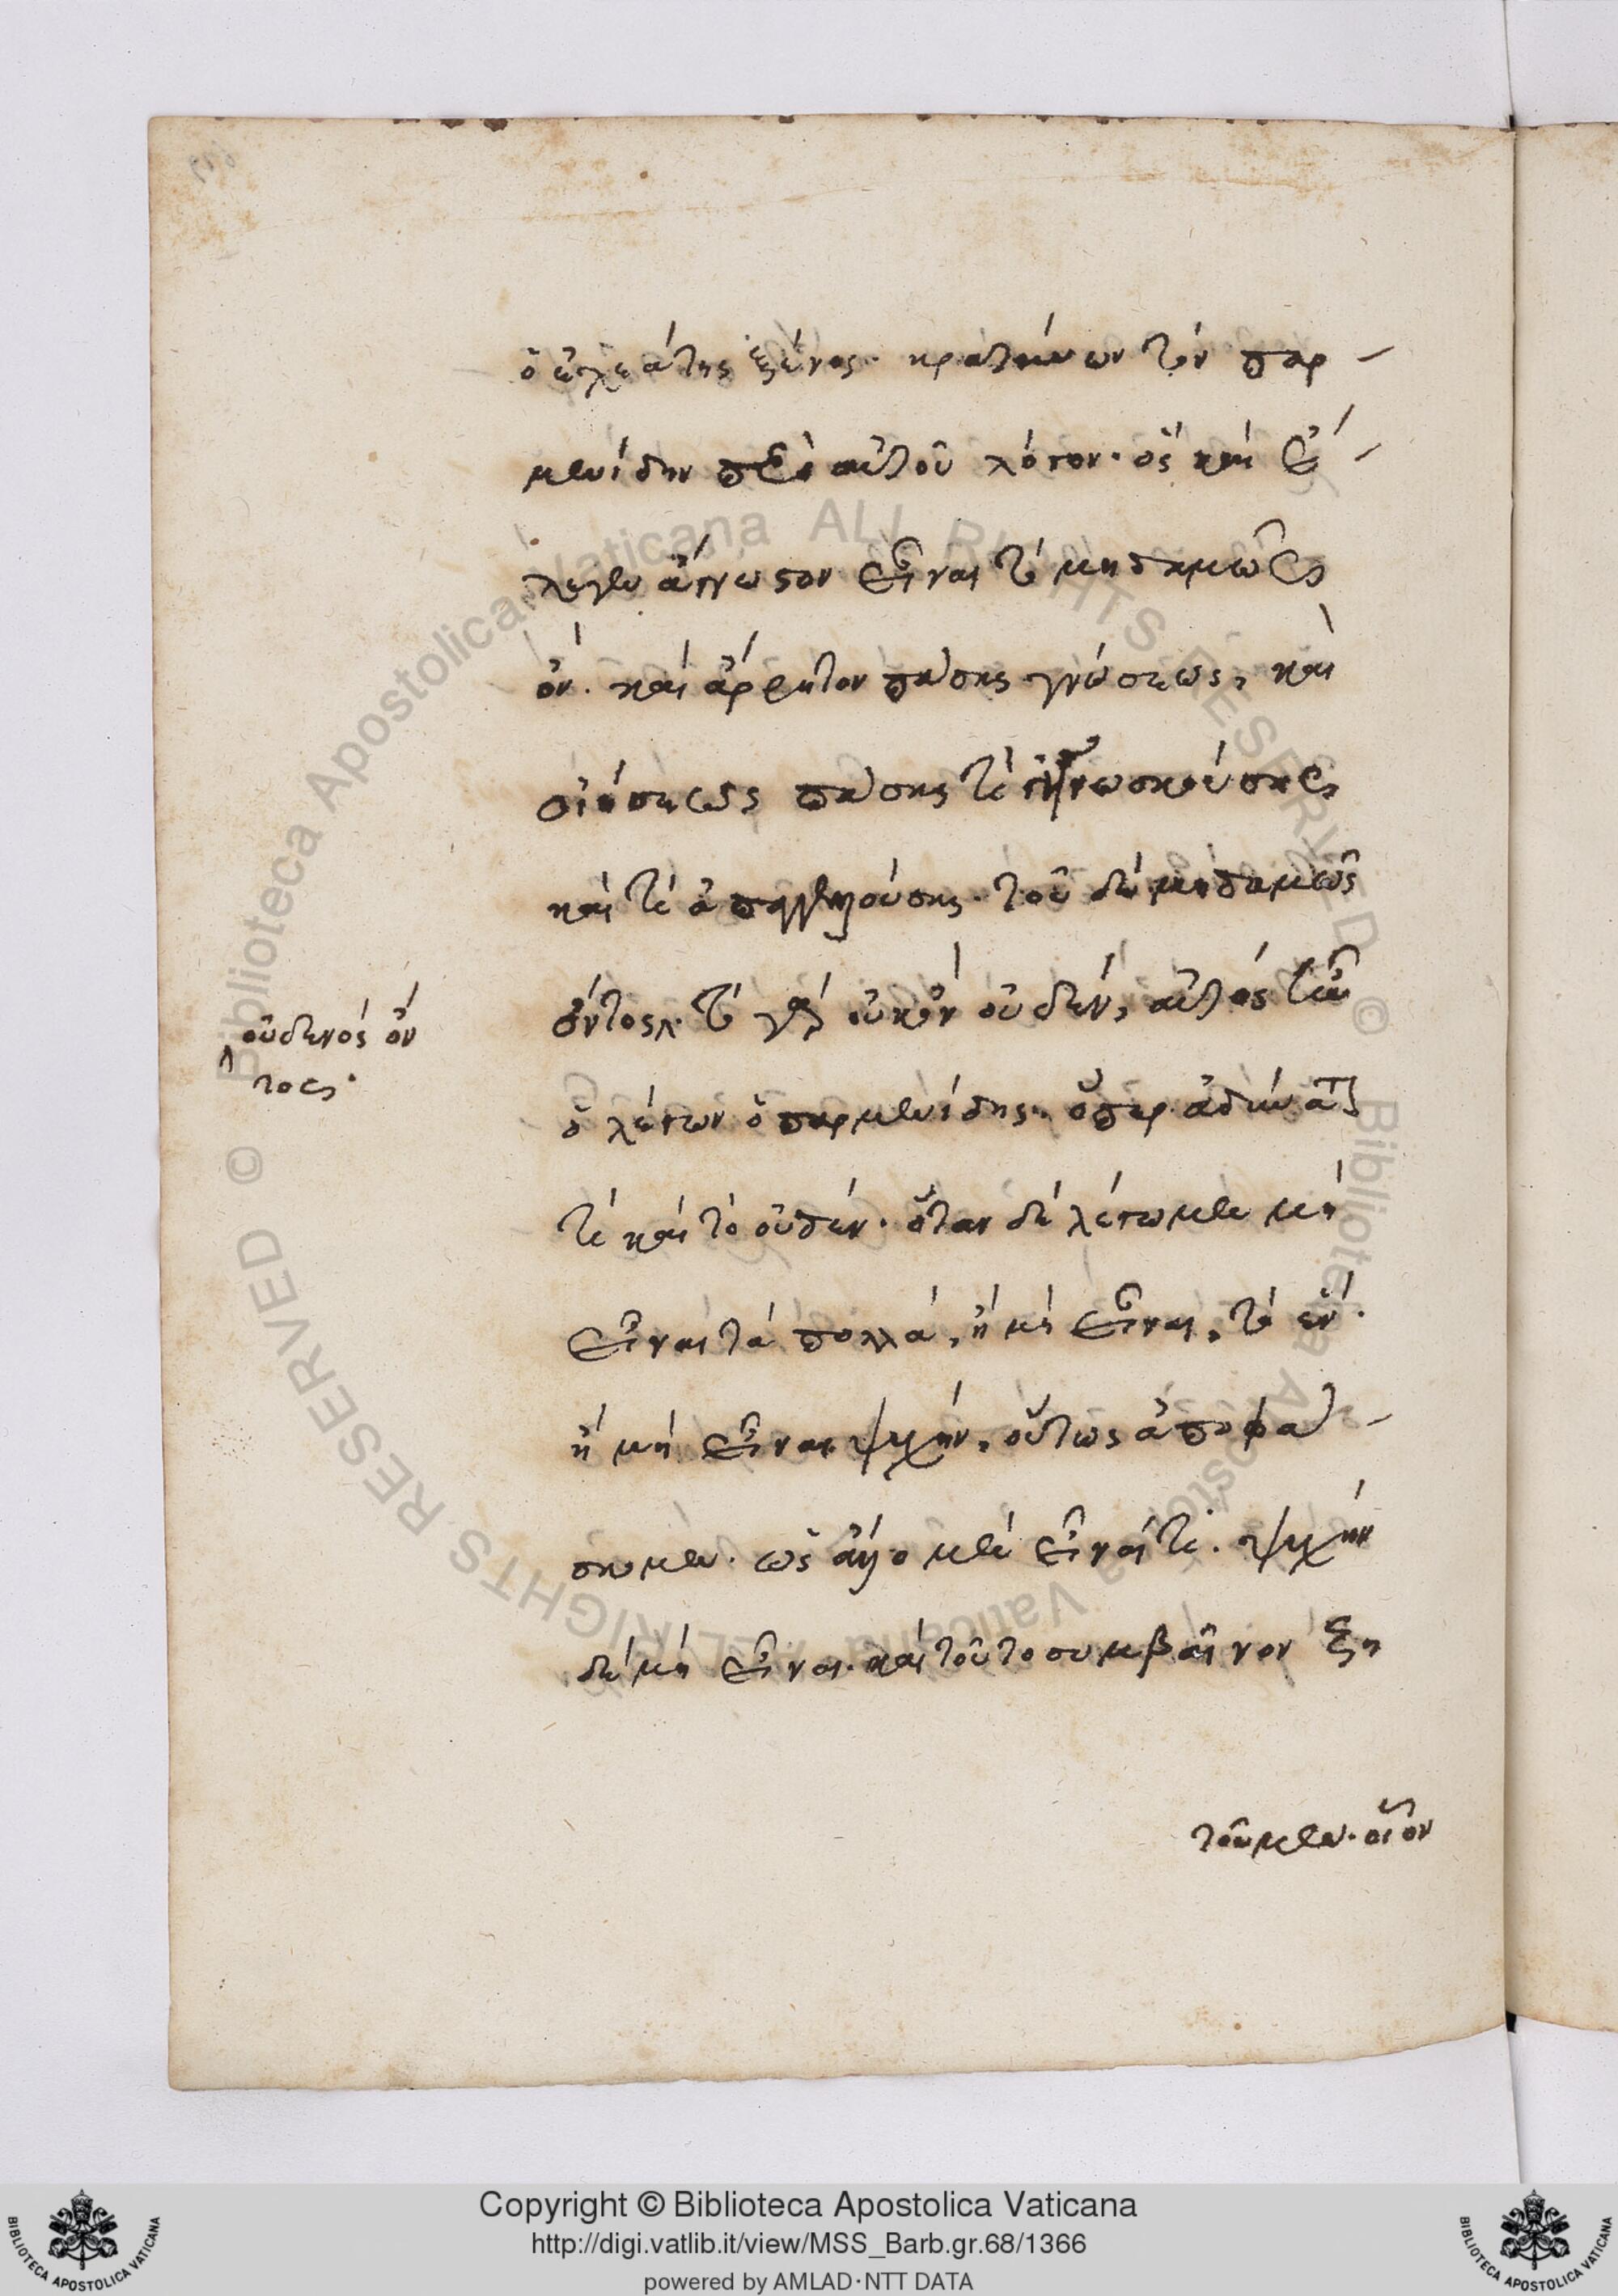 ὁ ἐλεάτης ξένος· κρατύνων τὸν παρ-
μενίδην περὶ αὐτοῦ λόγον· ὃς καὶ ἔ-
λεγεν ἄγνωστον εἶναι τὸ μηδαμῶς
ὄν· καὶ ἄρρητον πάσης γνώσεως, καὶ
πάσης τε γιγνωσκούσης
καὶ τε ἀπαγγελλούσης· τοῦ δὲ μηδαμῶς
ὄντος· τὸ γὰρ οὐκ ὂν οὐδὲν, αὐτὸς ἦν
οὐδενὸς ὄν
τος·
ὁ λέγων ὁ παρμενίδης· ὅπερ ἀδύνατ
τε καὶ τὸ οὐδέν· ὅταν δὲ λέγωμεν μὴ
εἶναι τὰ πολλά, ἢ μὴ εἶναι, τὸ ἕν·
ἢ μὴ εἶναι ψυχήν, οὕτως ἀποφα-
σκομεν· ὡς ἄλλο μὲν εἶναί τι· ψυχὴν
δὲ μὴ εἶναι· καὶ τοῦτο συμβαῖνον ζη
τοῦμεν· οἷον
Copyright © Biblioteca Apostolica Vaticana
http://digi.vatlib.it/view/MSS_Barb.gr.68/1366
powered by AMLAD·NTT DATA
BIBLIOTECA APOSTOLICA VATICANA
BIBLIOTECA APOSTOLICA VATICANA
© Biblioteca Apostolica Vaticana ALL RIGHTS RESERVED
© Biblioteca Apostolica Vaticana ALL RIGHTS RESERVED